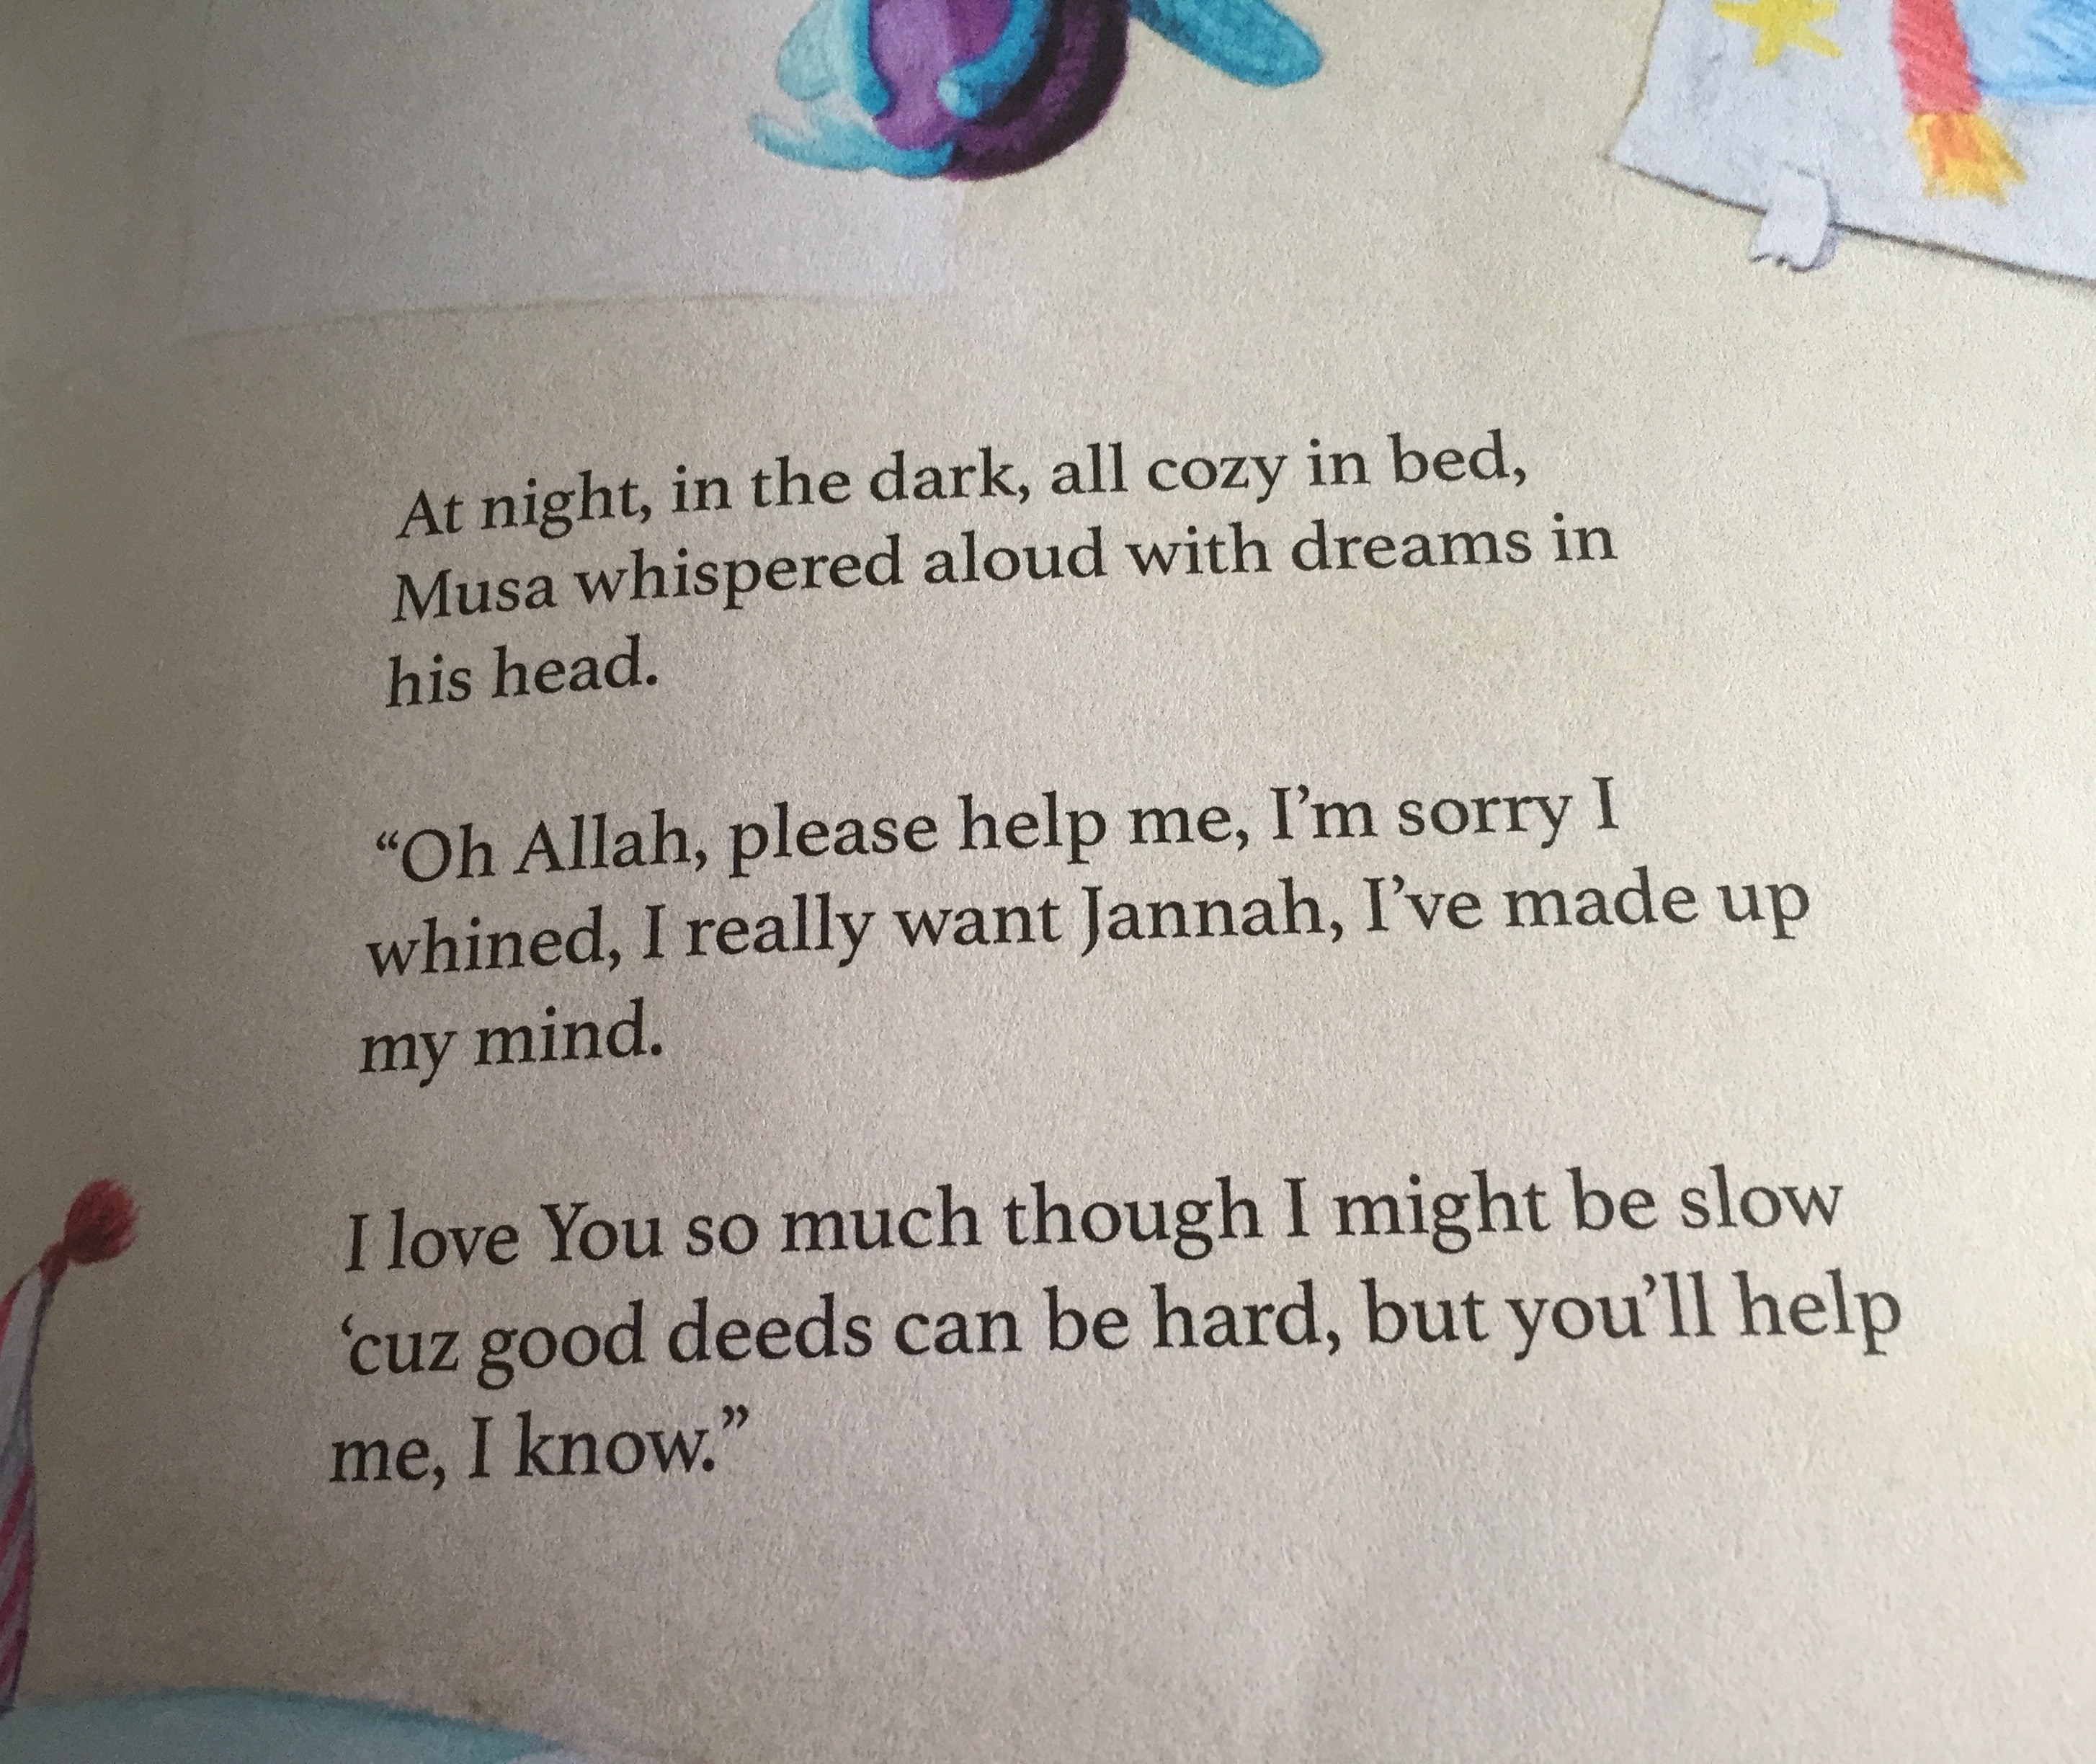 At night, in the dark, all cozy in bed,
Musa whispered aloud with dreams in
his head.
“Oh Allah, please help me, I’m sorry I
whined, I really want Jannah, I’ve made up
my mind.
I love You so much though I might be slow
‘cuz good deeds can be hard, but you’ll help
me, I know.”